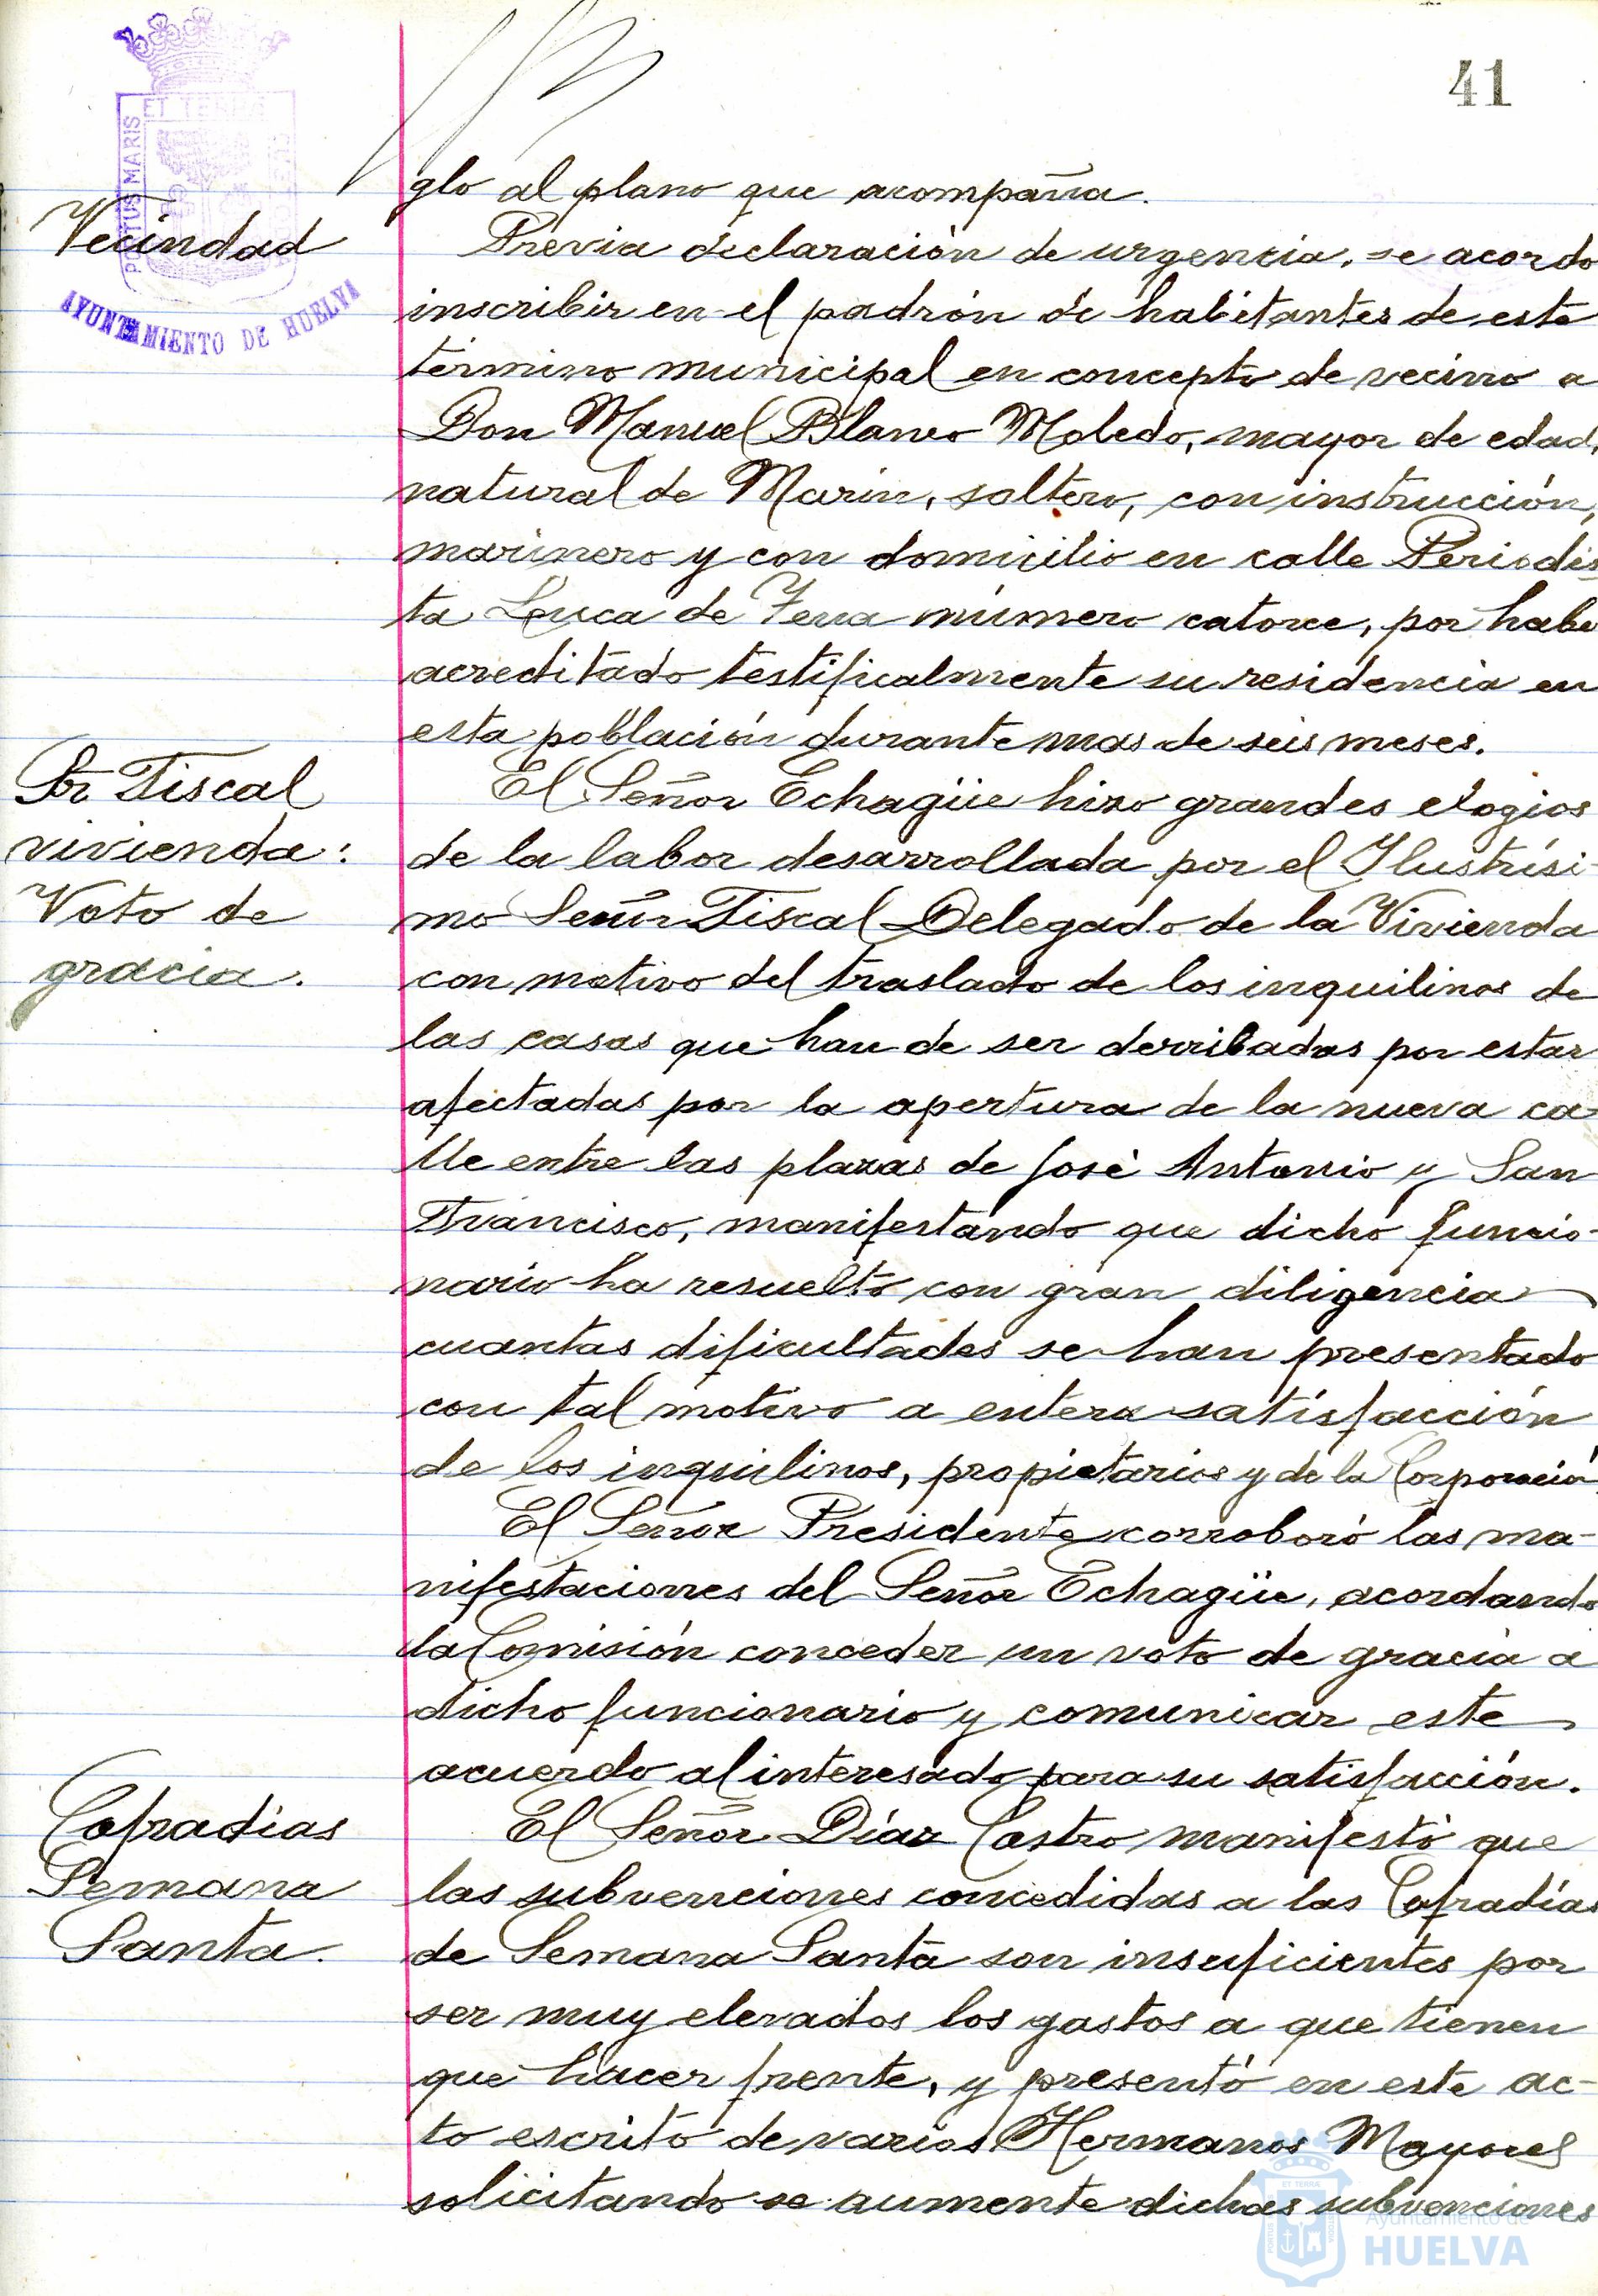 41
PORTUS MARIS ET TERRÆ
AYUNTAMIENTO DE HUELVA
glo al plano que acompaña.
Vecindad
Previa declaración de urgencia, se acordo
inscribir en el padrón de habitantes de este
término municipal en concepto de vecino a
Don Manuel Blanco Moledo, mayor de edad,
natural de Marin, soltero, con instrucción,
marinero y con domicilio en calle Periodis
ta Luca de Tena número catorce, por habe
acreditado testificalmente su residencia en
esta población durante mas de seis meses.
Sr Fiscal
vivienda:
Voto de
gracia.
El Señor Echagüe hizo grandes elogios
de la labor desarrollada por el Ilustrísi-
mo Señor Fiscal Delegado de la Vivienda
con motivo del traslado de los inquilinos de
las casas que han de ser derribadas por estar
afectadas por la apertura de la nueva ca
lle entre las plazas de José Antonio y San
Francisco, manifestando que dicho funcio-
nario ha resuelto con gran diligencia
cuantas dificultades se han presentado
con tal motivo a entera satisfacción
de los inquilinos, propietarios y de la Corporación
El Señor Presidente corroboró las ma-
nifestaciones del Señor Echagüe, acordando
la Comisión conceder un voto de gracia a
dicho funcionario y comunicar este
acuerdo al interesado para su satisfacción.
Cofradias
Semana
Santa.
El Señor Díaz Castro manifestó que
las subvenciones concedidas a las Cofradías
de Semana Santa son insuficientes por
ser muy elevados los gastos a que tienen
que hacer frente, y presentó en este ac-
to escrito de varios Hermanos Mayores
solicitando se aumente dichas subvenciones
Ayuntamiento de
HUELVA